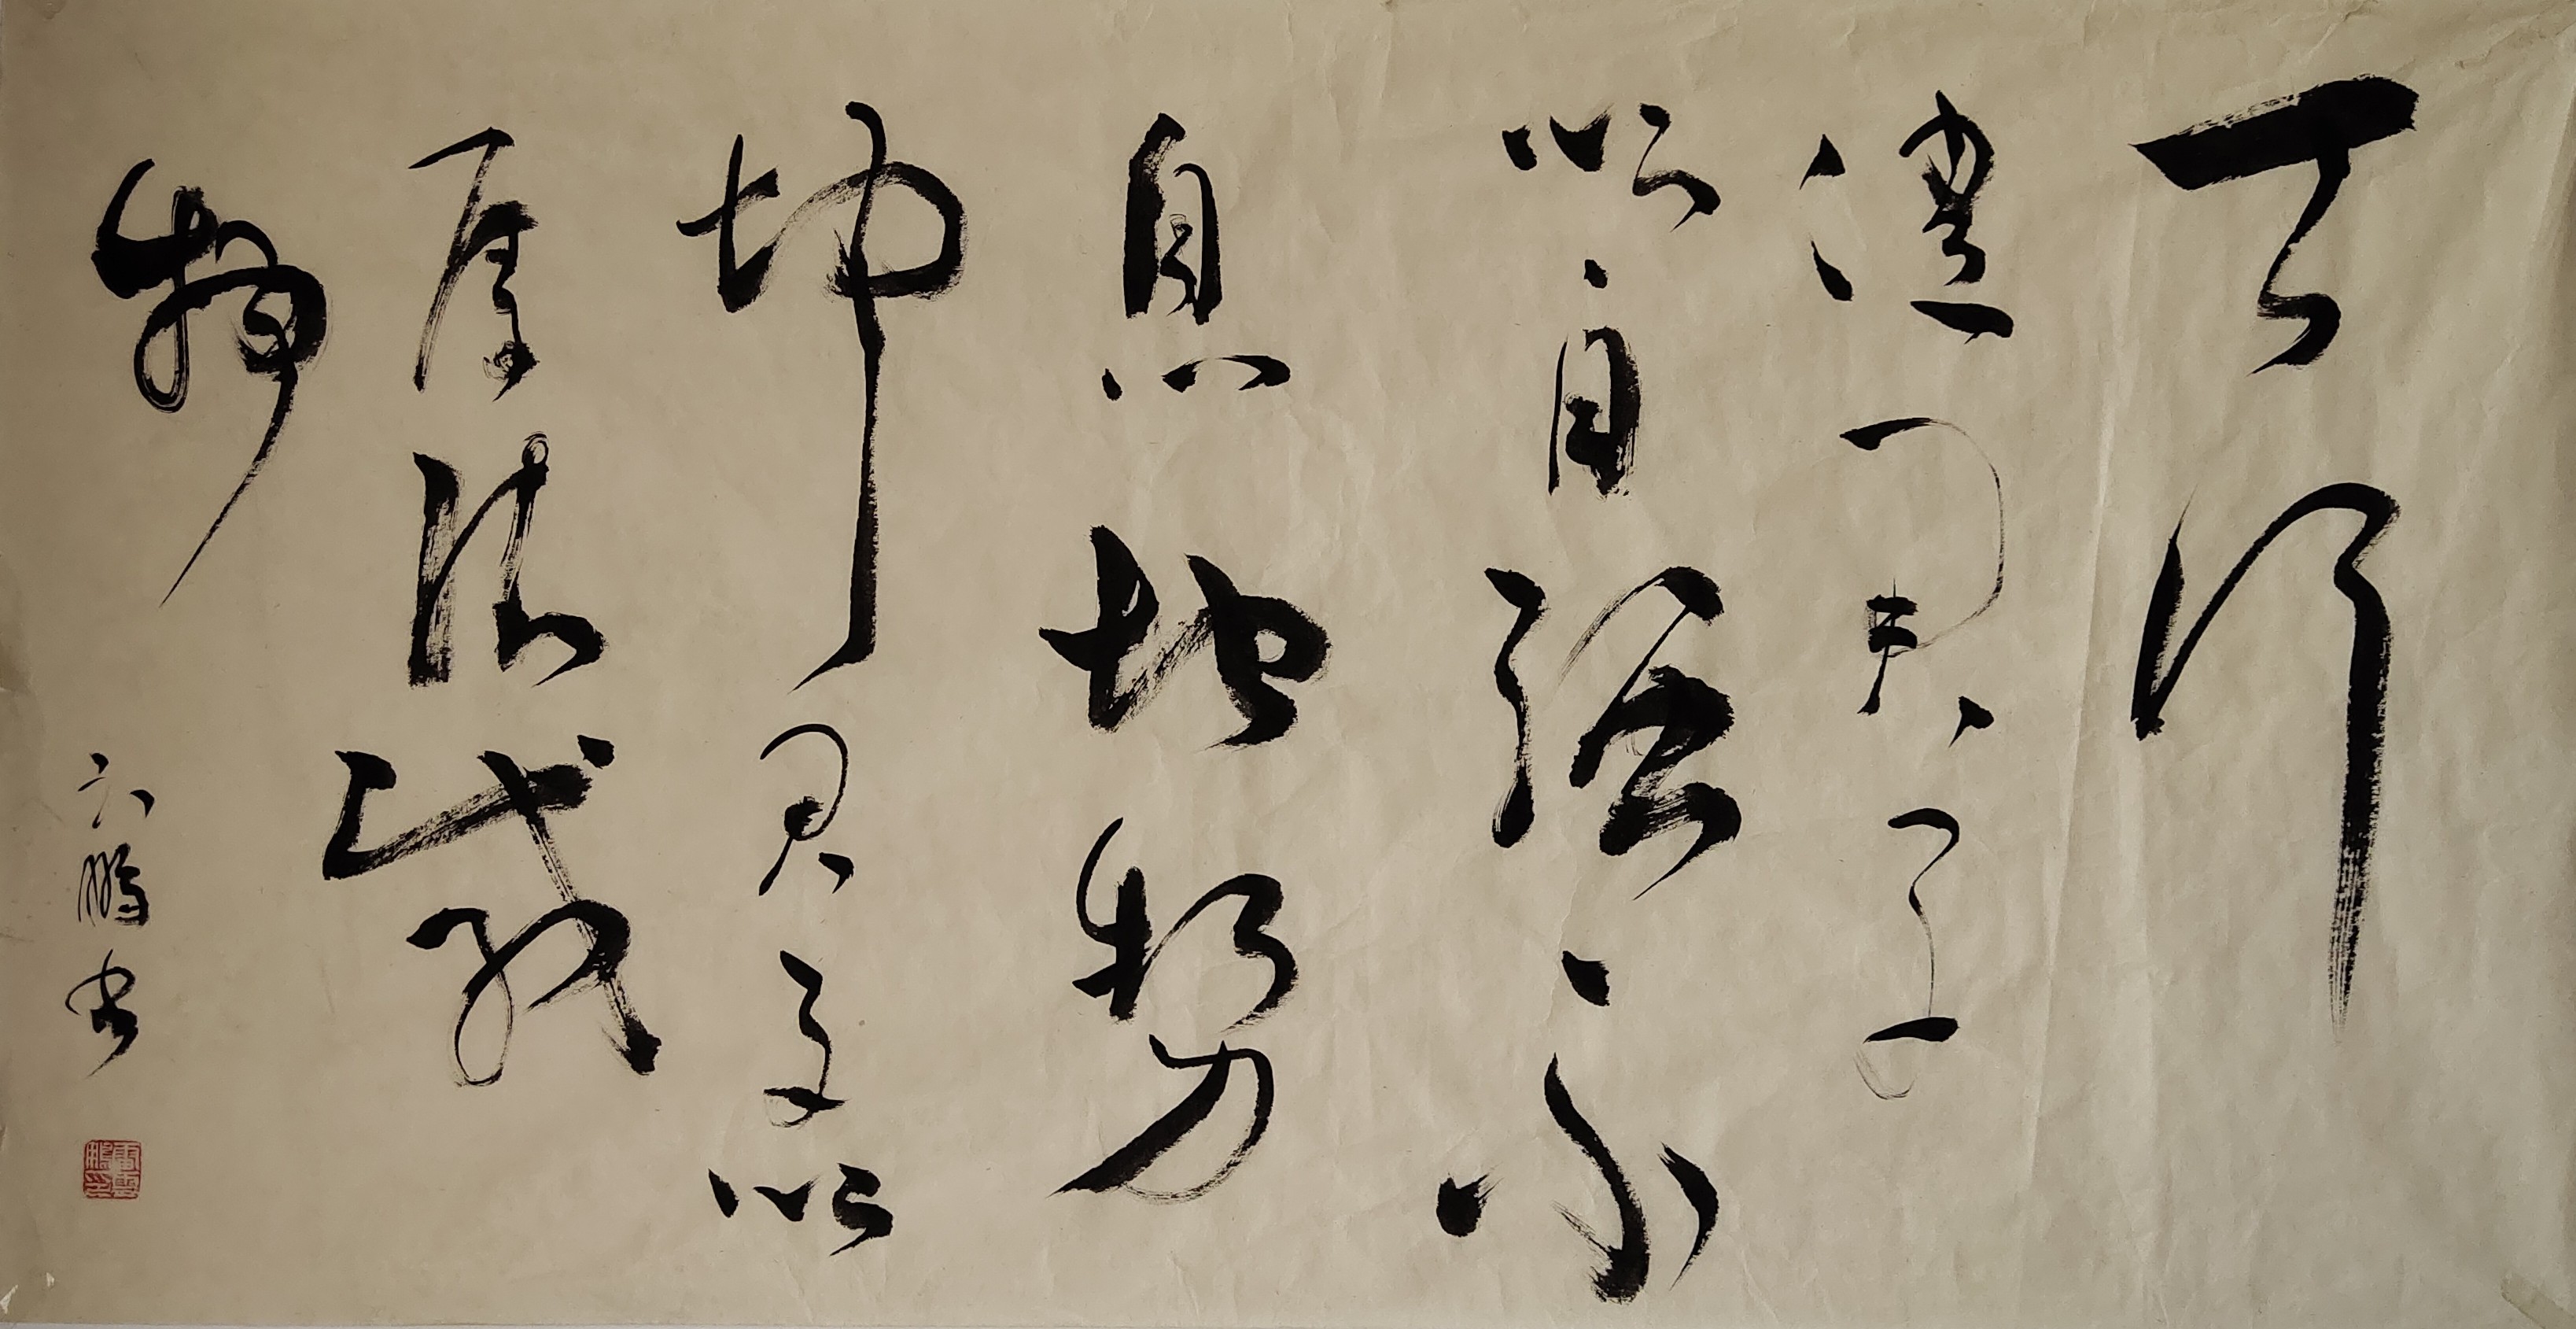 天行
健君子
以自强不
息地势
坤君子以
厚德载
物
云鹏书
雷雲鵬印